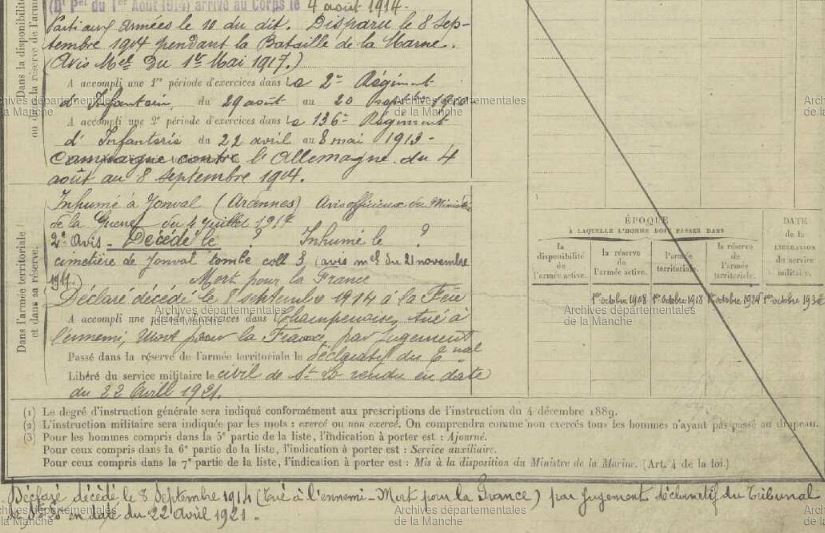 (Dt Pel du 1er Août 1914) arrivé au Corps le 4 août 1914.
Parti aux armées le 10 du dit. Disparu le 8 Sep-
tembre 1914 pendant la Bataille de la Marne.
(Avis Mel Du 1er Mai 1917.)
A accompli une 1re période d'exercices dans le 2e Régiment
d'Infanterie du 29 août au 20 1910
A accompli une 2e période d'exercices dans le 136e Régiment
d'Infanterie du 22 avril au 8 mai 1913-
Campagne contre l'Allemagne. du 4
août au 8 septembre 1914.
Dans la disponibilité
ou dans la réserve de l'armée
Inhumé à Jonval (Ardennes) Avis officieux du Ministre
de la Guerre du 4 juillet
2e Avis - Décédé le ? Inhumé le ?
cimetière de Jonval tombe coll 3 (avis mel du 21 novembre
Mort pour la France
Déclaré décédé le 8 septembre 1914 à la Fère
A accompli une période d'exercices dans Champenoise, Tué à
l'ennemi, Mort pour la France, par jugement
Passé dans la réserve de l'armée territoriale le déclaratif du Tnal
Libéré du service militaire le civil de St Lo rendu en date
du 22 Avril 1921.
Dans l'armée territoriale
et dans sa réserve.
ÉPOQUE
À LAQUELLE L'HOMME DOIT PASSER DANS
la disponibilité de l'armée active.
la réserve de l'armée active.
l'armée territoriale.
la réserve de l'armée territoriale.
DATE de la LIBÉRATION du service militaire.
1er octobre 1908
1er octobre 1918
octobre 1924
1er octobre
(1) Le degré d'instruction générale sera indiqué conformément aux prescriptions de l'instruction du 4 décembre 1889.
(2) L'instruction militaire sera indiquée par les mots : exercé ou non exercé. On comprendra comme non exercés tous les hommes n'ayant pas passé au drapeau.
(3) Pour les hommes compris dans la 5e partie de la liste, l'indication à porter est : Ajourné.
Pour ceux compris dans la 6e partie de la liste, l'indication à porter est : Service auxiliaire.
Pour ceux compris dans la 7e partie de la liste, l'indication à porter est : Mis à la disposition du Ministre de la Marine. (Art. 4 de la loi.)
Déclaré décédé le 8 Septembre 1914 (Tué à l'ennemi - Mort pour la France) par Jugement déclaratif du Tribunal
de St Lo en date du 22 Avril 1921.
Archives départementales
de la Manche
Archives départementales
de la Manche
Archives départementales
de la Manche
Archives départementales
de la Manche
Archives départementales
de la Manche
Archives départementales
de la Manche